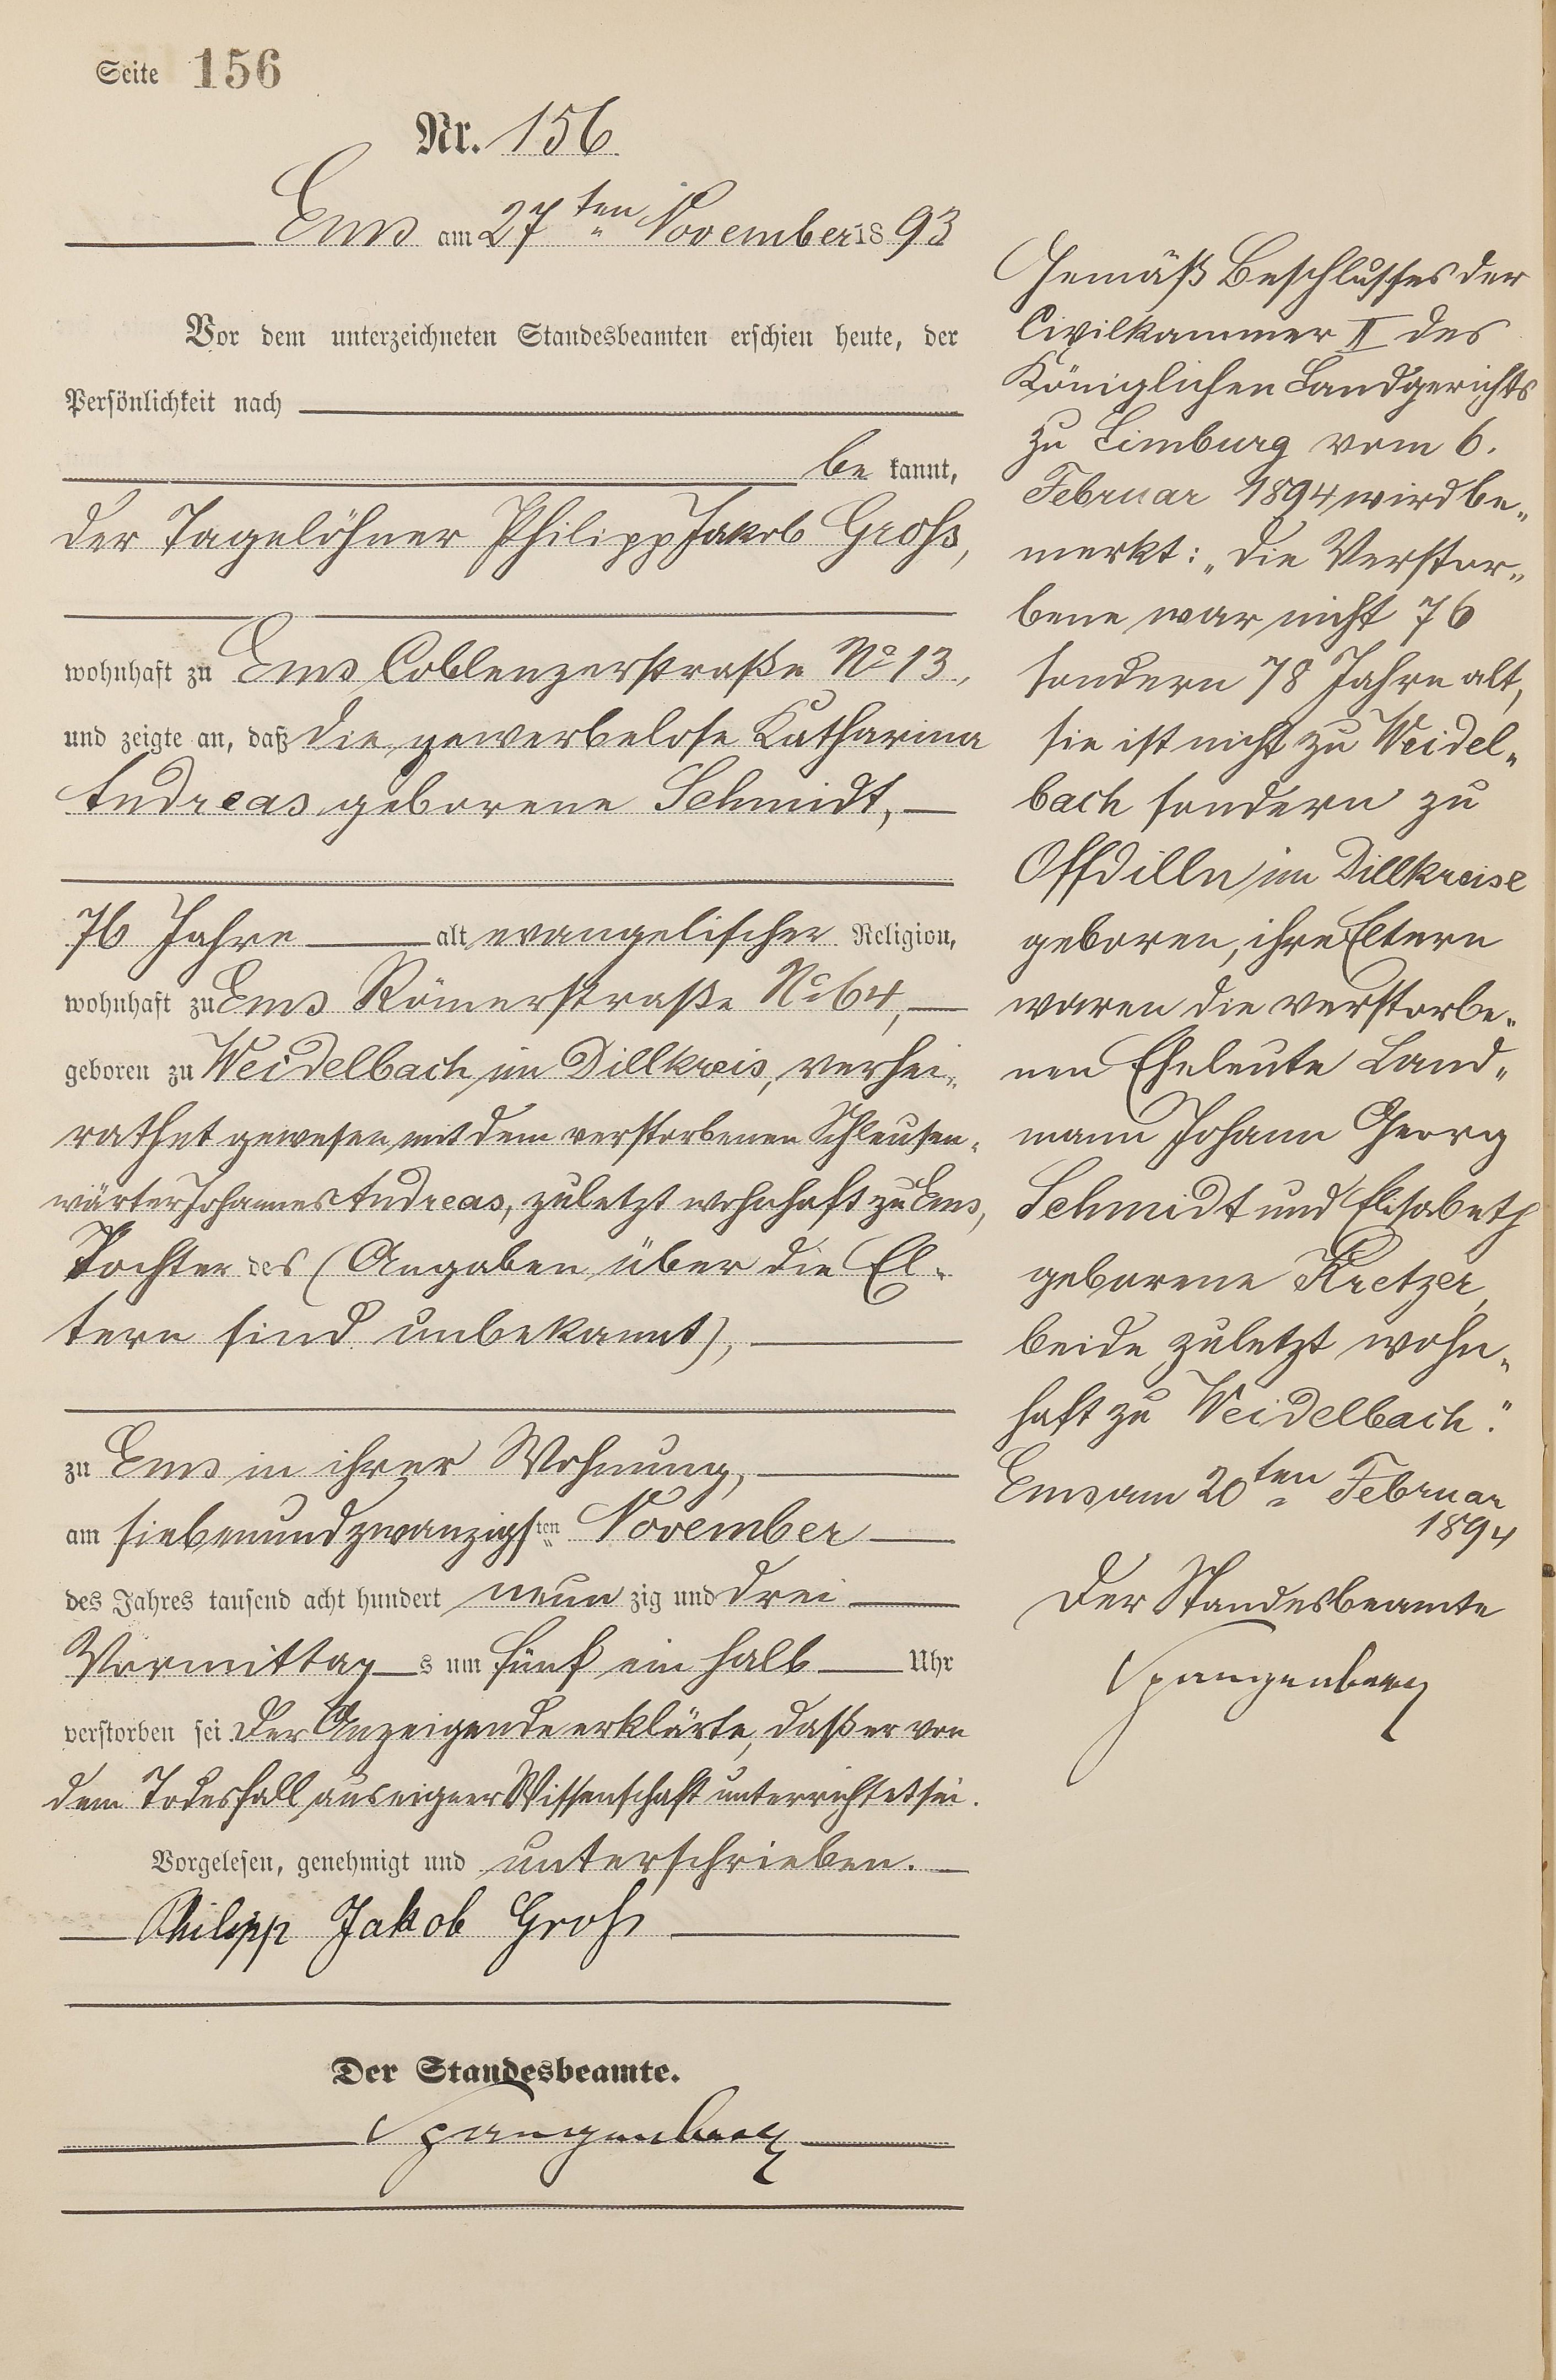 Seite 156
Nr. 156
Ems am 27ten November 1893
Vor dem unterzeichneten Standesbeamten erschien heute, der
Persönlichkeit nach
be kannt,
der Tagelöhner Philipp Jakob Groß,
wohnhaft zu Ems Coblenzerstraße No 13,
und zeigte an, daß die gewerbelose Katharina
Andreas geborene Schmidt,
76 Jahre alt evangelischer Religion,
wohnhaft zu Ems Römerstraße No 64,
geboren zu Weidelbach im Dillkreis, verhei-
rathet gewesen mit dem verstorbenen Schleusen-
wärter Johannes Andreas, zuletzt wohnhaft zu Ems,
Tochter des (Angaben über die El-
tern sind unbekannt),
zu Ems in ihrer Wohnung,
am siebenundzwanzigsten November
des Jahres tausend acht hundert neun zig und drei
Vormittag s um fünf ein halb Uhr
verstorben sei Der Anzeigende erklärte, daß er von
dem Todesfall aus eigner Wissenschaft unterrichtet sei.
Vorgelesen, genehmigt und unterschrieben.
Philipp Jakob Groß
Der Standesbeamte.
Spangenberg
Gemäß Beschlusses der
Civilkammer II des
Königlichen Landgerichts
zu Limburg vom 6.
Februar 1894 wird be-
merkt: „Die Verstor-
bene war nicht 76
sondern 78 Jahre alt,
sie ist nicht zu Weidel-
bach sondern zu
Offdilln im Dillkreise
geboren, ihre Eltern
waren die verstorbe-
nen Eheleute Land-
mann Johann Georg
Schmidt und Elisabeth
geborene Kretzer,
beide zuletzt wohn-
haft zu Weidelbach."
Ems am 20ten Februar
1894
Der Standesbeamte
Spangenberg